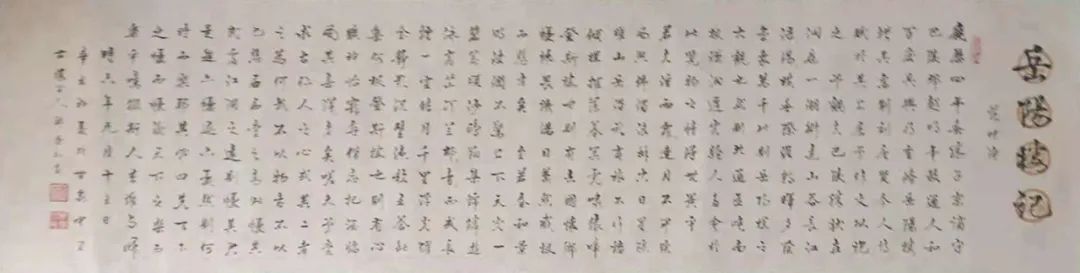 岳陽樓記
范仲淹
慶曆四年春滕子京謫守
巴陵郡越明年政通人和
百廢具興乃重修岳陽樓
增其舊制刻唐賢今人詩
賦於其上屬予作文以記
之 予觀夫巴陵勝狀在
洞庭一湖銜遠山吞長江
浩浩湯湯橫無際涯朝暉夕陰
氣象萬千此則岳陽樓之
大觀也然則北通巫峽南
極瀟湘遷客騷人多會於
此覽物之情得無異乎
若夫霪雨霏霏連月不開陰
風怒號濁浪排空日星隱
耀山岳潛形商旅不行檣
傾楫摧薄暮冥冥虎嘯猿啼
登斯樓也則有去國懷鄉
憂讒畏譏滿目蕭然感極
而悲者矣 至若春和景
明波瀾不驚上下天光一
碧萬頃沙鷗翔集錦鱗游
泳岸芷汀蘭郁郁青青而或長
煙一空皓月千里浮光躍
金靜影沉璧漁歌互答此
樂何極登斯樓也則有心
曠神怡寵辱偕忘把酒臨
風其喜洋洋者矣嗟夫予嘗
求古仁人之心或異二者
之為何哉不以物喜不以
己悲居廟堂之高則憂其
民處江湖之遠則憂其君
是進亦憂退亦憂然則何
時而樂耶其必曰先天下
之憂而憂後天下之樂而
樂乎噫微斯人吾誰與歸
時六年九月十五日
辛丑初夏